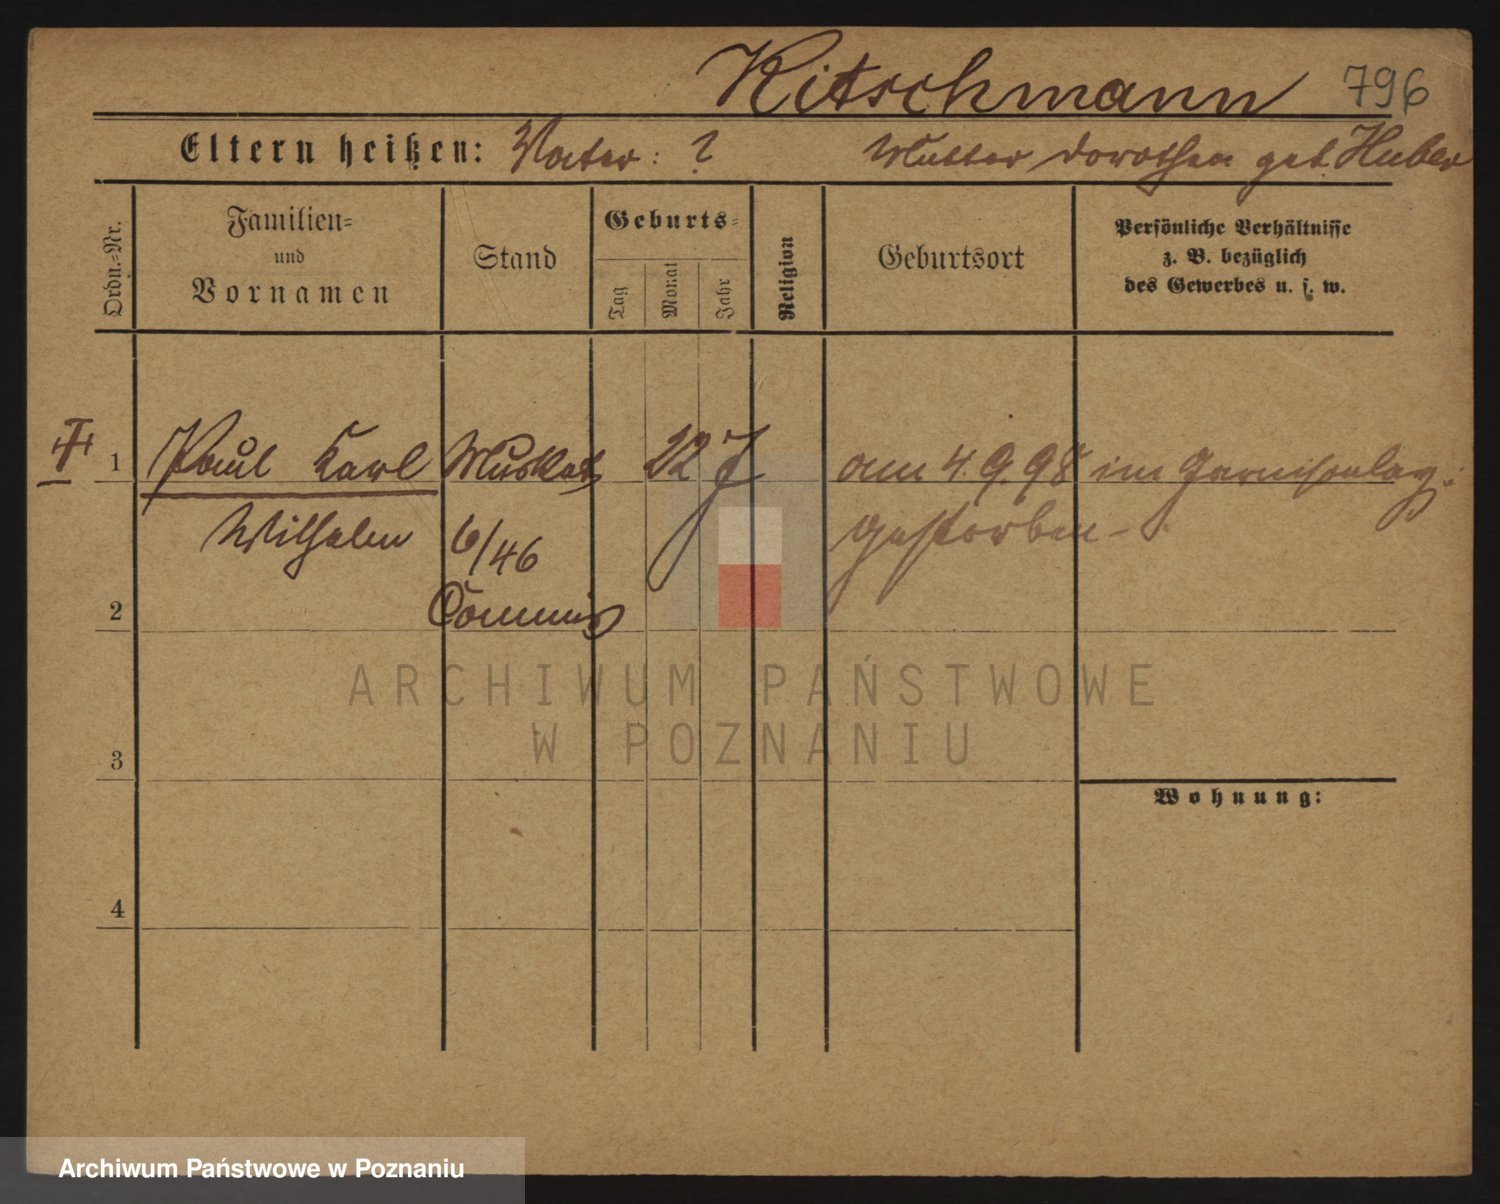 Kitschmann 796
Eltern heißen: Vater: ? Mutter Dorothea geb. Huber
Ordn.=Nr.
Familien=
und
Vornamen
Stand
Geburts=
Tag
Monat
Jahr
Religion
Geburtsort
Persönliche Verhältnisse
z. B. bezüglich
des Gewerbes u. s. w.
1 Paul Karl Musket 22 J am 4.9.98 im Garnisonlaz.
Wilhelm 6/46 gestorben -
2 Commis
ARCHIWUM PAŃSTWOWE
W POZNANIU
3
Wohnung:
4
Archiwum Państwowe w Poznaniu